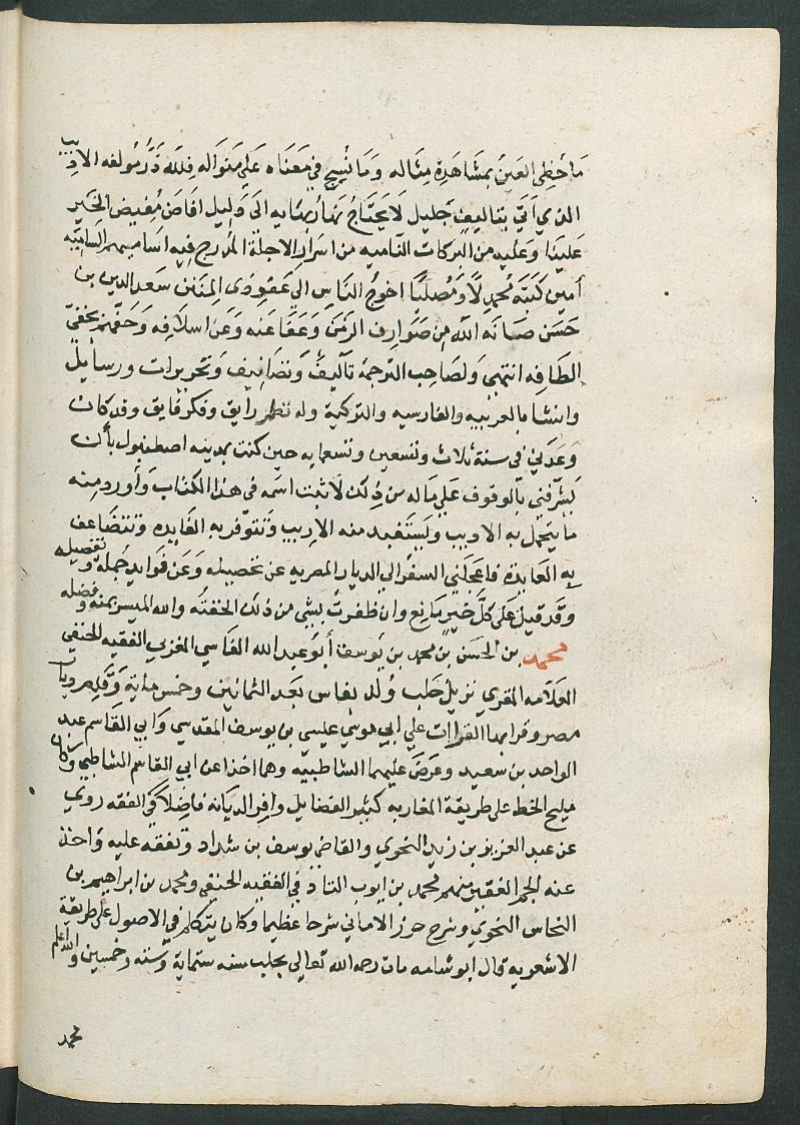 ما حظى العين بمشاهدة مثاله وما نسج في معناه على منواله فلله در مولفه الاديب
الذي اتى بتاليف جليل لا يحتاج نهار بهايه الى دليل افاض مفيض الخير
علينا وعليه من البركات الناميه من اسرار الاجلة المدرج فيه اساميهم الساميه
امين كتبه محمد لا ومصليا احوج الناس الى عفو ذي المنن سعد الدين بن
حسن صانه الله من صوارف الزمن وعفا عنه وعن اسلافه وحفهم بخفي
الطافه انتهى ولصاحب الترجمة تآليف وتصانيف وتحريرات ورسايل
وانشا بالعربيه والفارسيه والتركية وله نظم رايق وفكر فايق وقد كان
وعدني في سنة ثلاث وتسعين وتسعمايه حين كنت بمدينه اصطنبول بأن
يشرفني بالوقوف على ماله من ذلك لا ثبت اسمه في هذا الكتاب وأورد منه
ما يتجمل به الاديب ويستفيد منه الاريب وتتوفر به الفايده وتتضاعف
به العايدة فاعجلني السفر الي الديار المصريه عن تحصيله وعن فوايد جمله وتفصيله
وقد قيل على كل خير مانع وان ظفرت بشي من ذلك الحقته والله الميسر بمنه وفضله
محمد بن الحسن بن محمد بن يوسف أبو عبد الله الفاسي المغربي الفقيه الحنفي
العلامه المقري نزيل حلب ولد بفاس بعد الثمانين وخمس ماية وقدم ديار
مصر وقرا بها القراات علي ابي موسي عيسي بن يوسف المقدسي وابي القاسم عبد
الواحد بن سعيد وعرض عليهما الشاطبيه وهما اخذا عن ابي القاسم الشاطبي وكان
مليح الخط على طريقة المغاربه كثير الفضايل وافر الديانه فاضلا في الفقه روي
عن عبد العزيز بن زيد النحوي والقاضي يوسف بن شداد وتفقه عليه واخذ
عنه الجم الغفير منهم محمد بن ايوب التادفي الفقيه الحنفي ومحمد بن ابراهيم بن
النحاس النحوي وشرح حرز الاماني شرحا عظيما وكان يتكلم في الاصول على طريقة
الاشعريه قال ابو شامه مات رحمه الله تعالى بحلب سنه ستماية وسته وخمسين والله اعلم
محمد